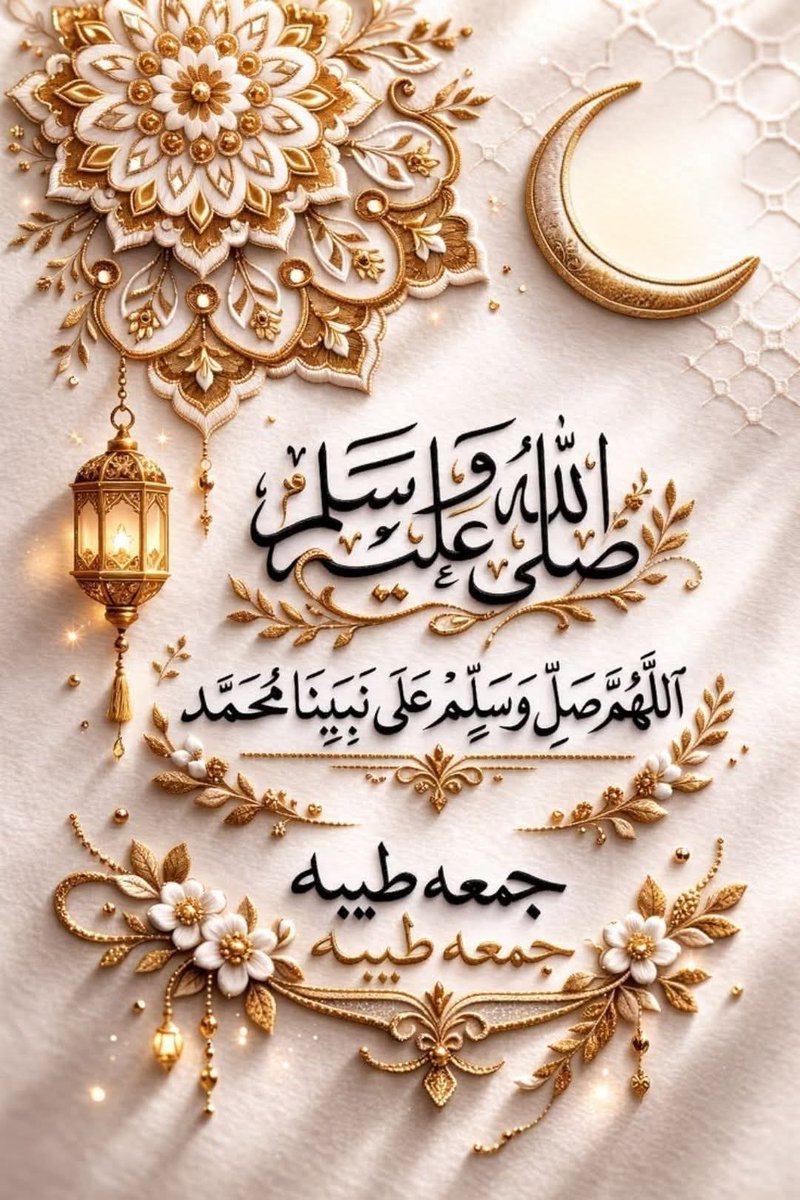 صلى الله عليه وسلم
ٱللَّهُمَّ صَلِّ وَسَلِّمْ عَلَى نَبِيِنَا مُحَمَّد
جمعه طيبه
جمعه طيبه